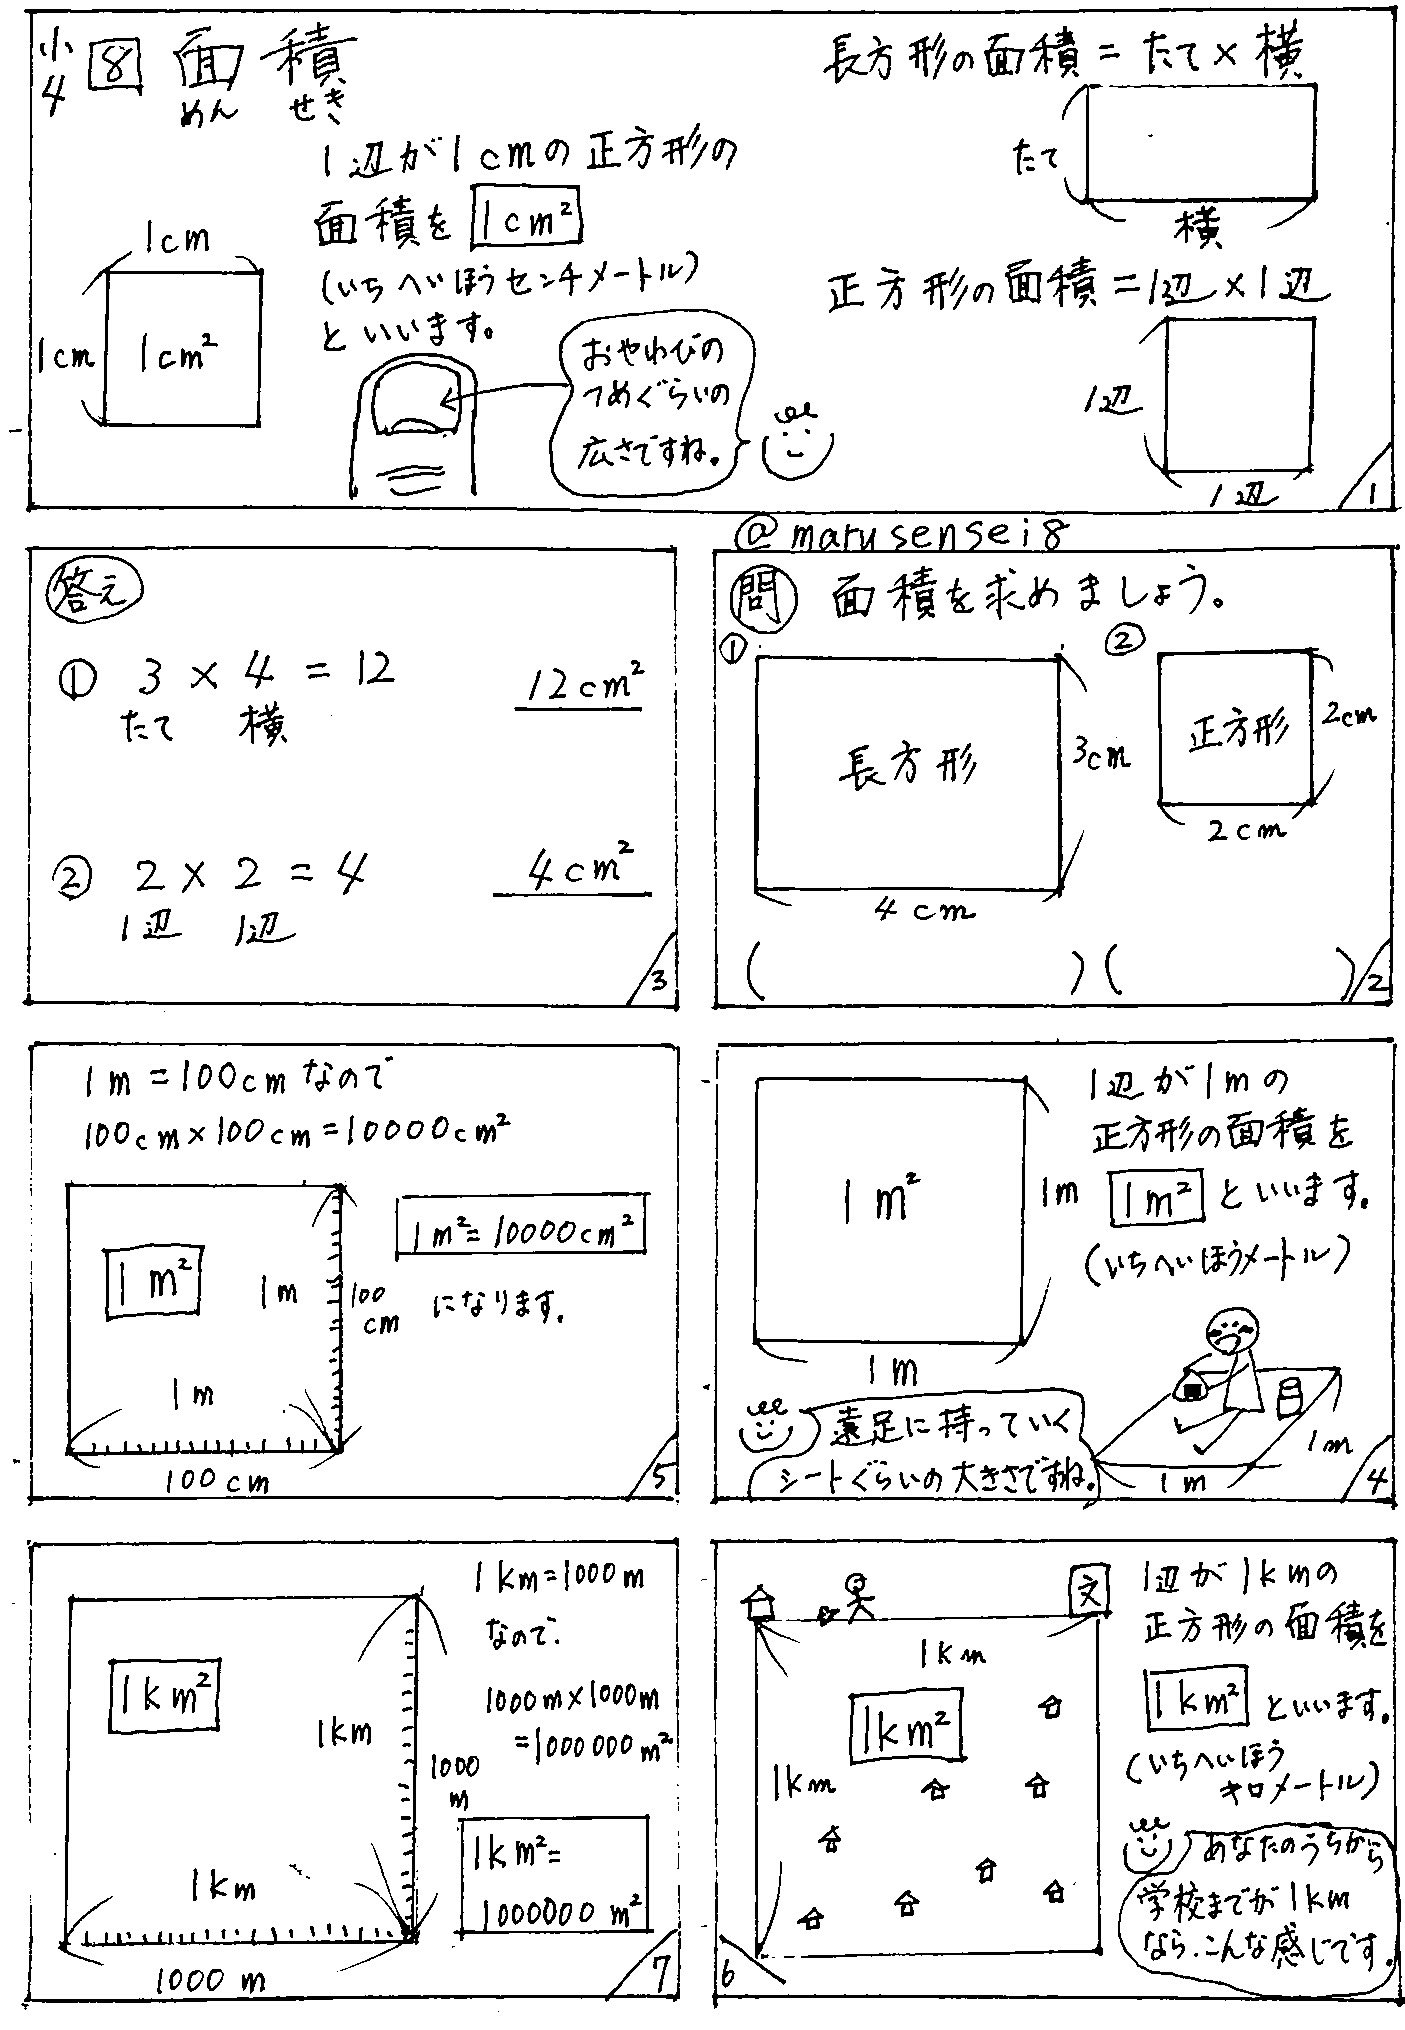 小4 8 面積
めんせき
1辺が1cmの正方形の
面積を 1cm²
(いちへいほうセンチメートル)
といいます。
1cm
1cm
1cm²
おやゆびの
つめぐらいの
広さですね。
長方形の面積=たて×横
たて
横
正方形の面積=1辺×1辺
1辺
1辺
1
@marusensei8
問 面積を求めましょう。
①
長方形
3cm
4cm
②
正方形
2cm
2cm
( ) ( )
2
答え
① 3×4=12
たて 横
12cm²
② 2×2=4
1辺 1辺
4cm²
3
1m²
1m
1m
1辺が1mの
正方形の面積を
1m² といいます。
(いちへいほうメートル)
遠足に持っていく
シートぐらいの大きさですね。
1m
1m
4
1m=100cmなので
100cm×100cm=10000cm²
1m²
1m
100
cm
1m
100cm
1m²=10000cm²
になります。
5
文
1km
1km²
1km
1辺が1kmの
正方形の面積を
1km² といいます。
(いちへいほう
キロメートル)
あなたのうちから
学校までが1km
なら、こんな感じです。
6
1km=1000m
なので、
1000m×1000m
=1000000m²
1km²
1km
1000
m
1km
1000m
1km²=
1000000m²
7